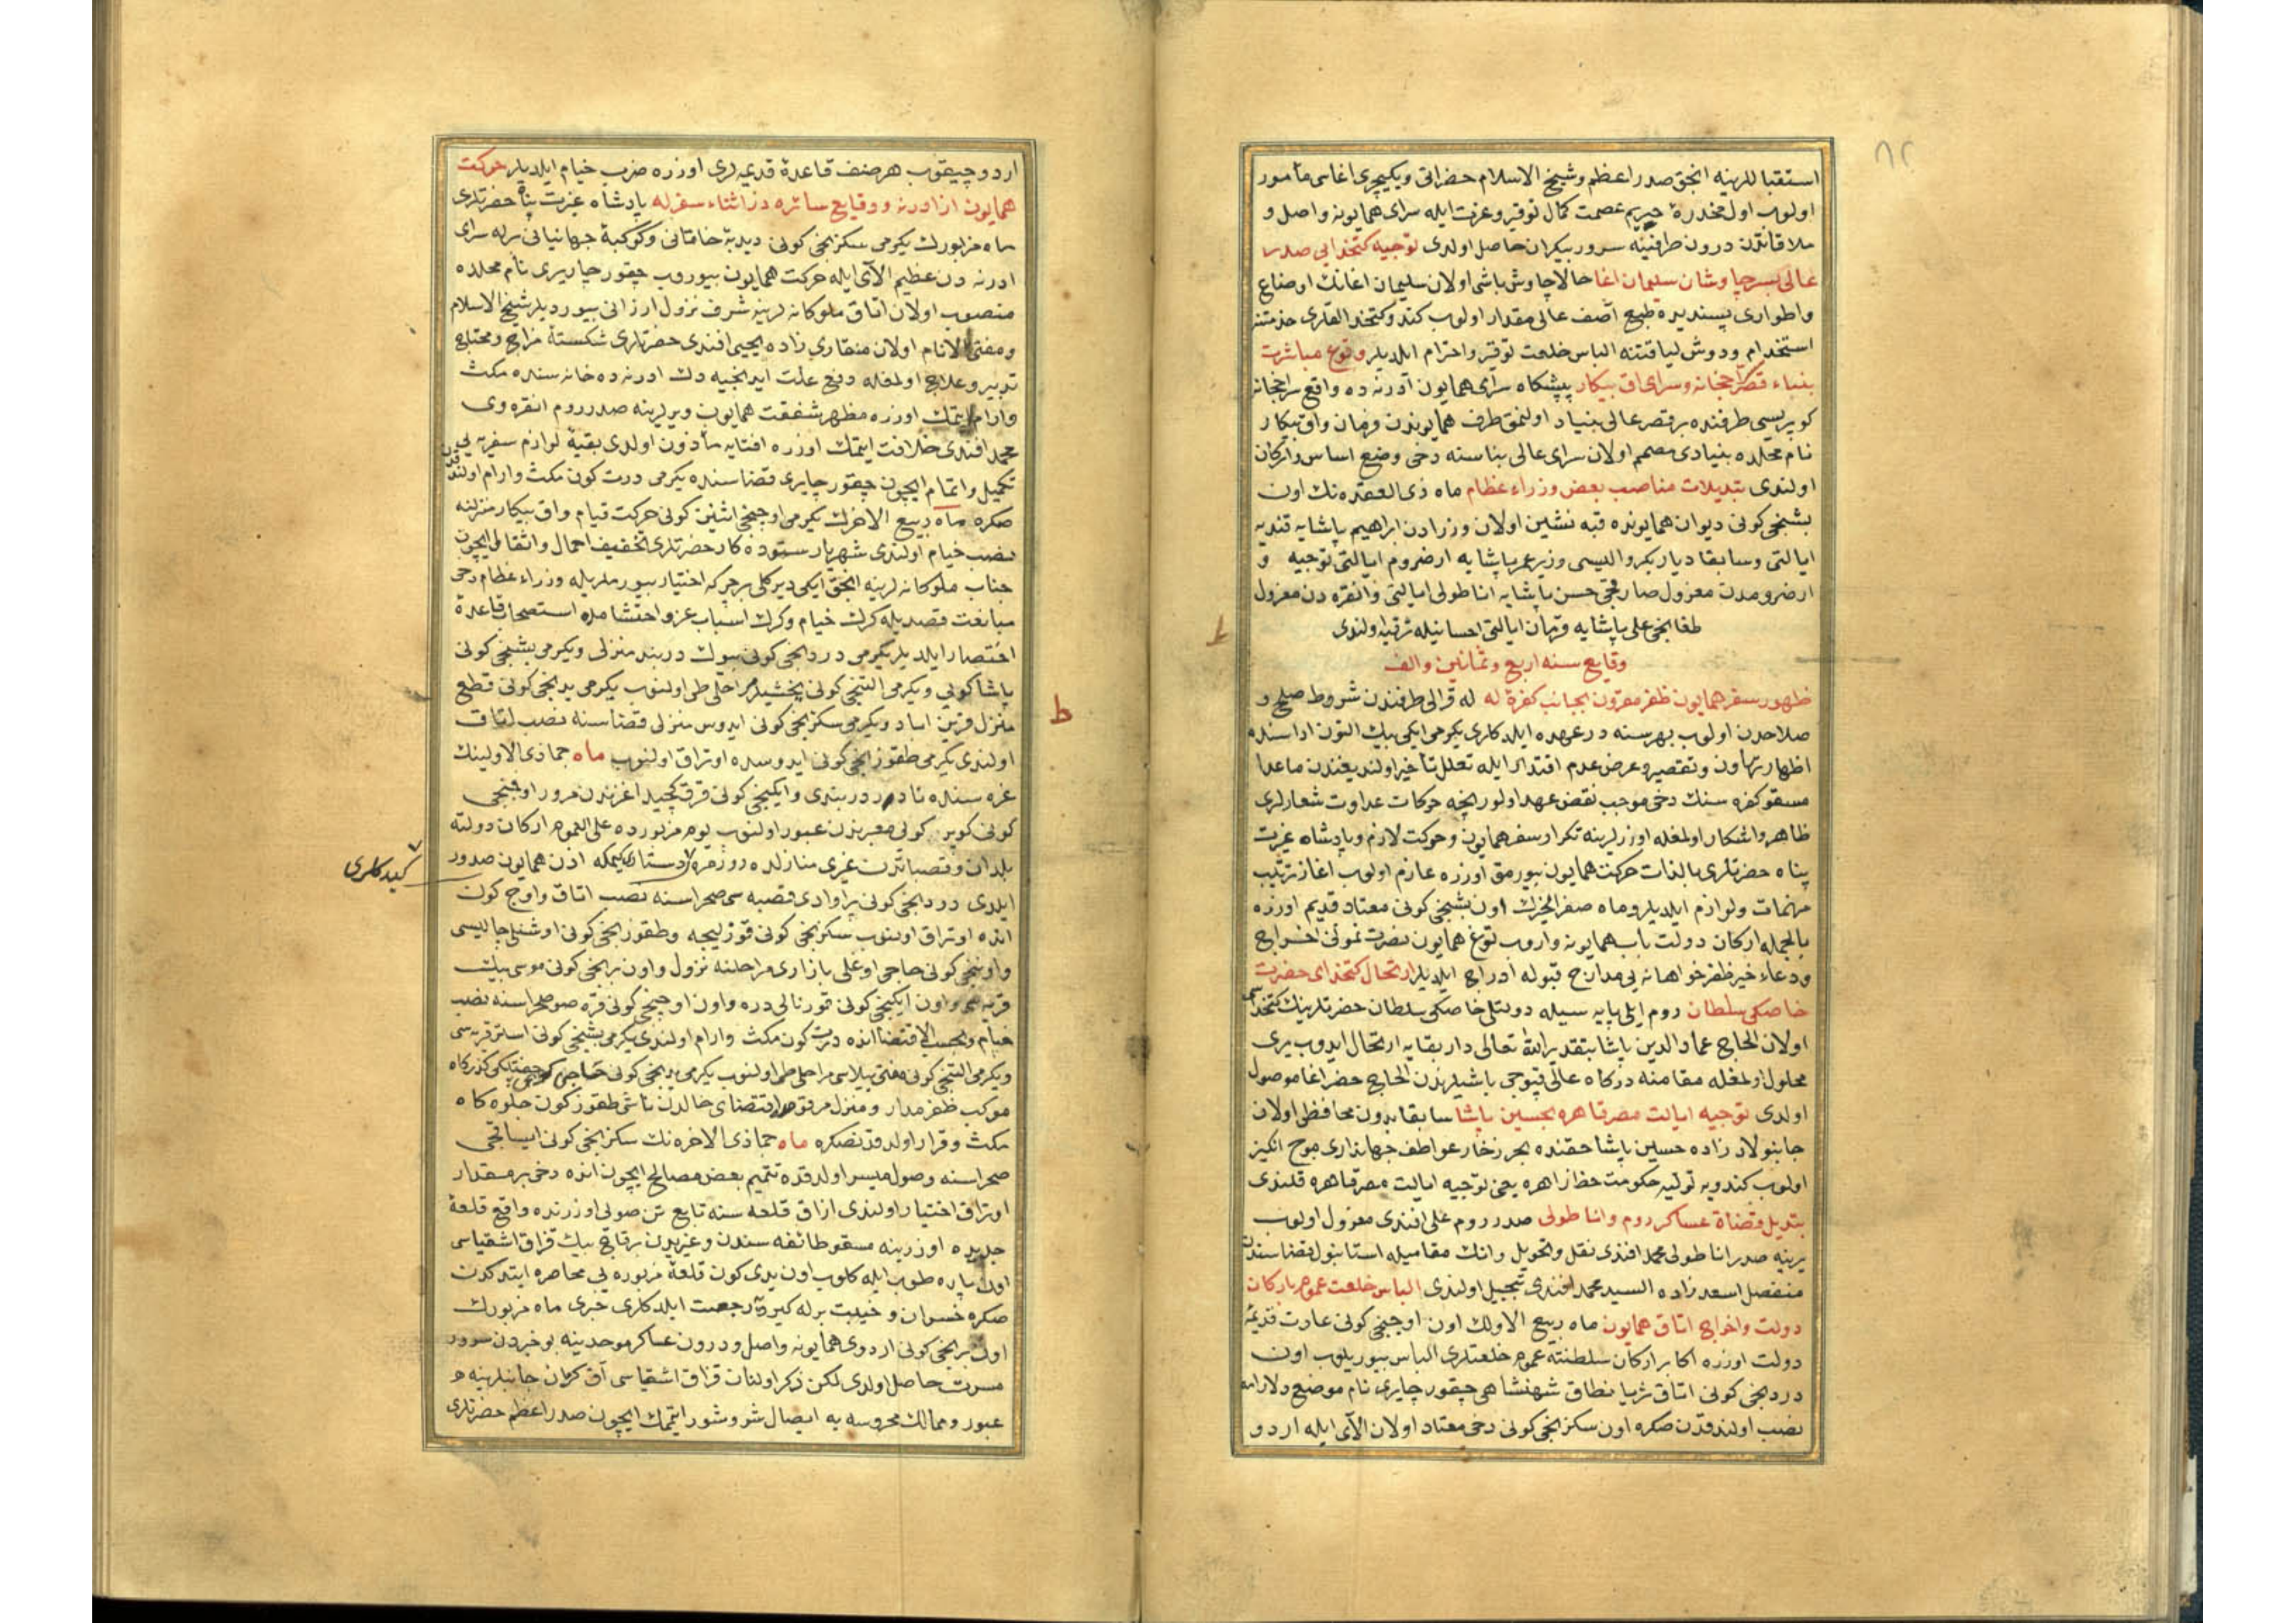 ٨٢
استقباللرينه انجق صدر اعظم وشيخ الاسلام حضراتى ويكيچرى اغاسى مأمور
اولوب اول مخدرۀ حريم عصمت كمال توقير وعزت ايله سراى همايونه واصل و
ملاقاتدن درون طرفينه سرور بيكران حاصل اولدى توجيه كتخدايى صدر
عالى بسرچاوشان سليمان اغا حالا چاوش باشى اولان سليمان اغانك اوضاع
واطوارى پسنديدۀ طبع آصف عالى مقدار اولوب كندو كتخدالقلرى خدمتنه
استخدام ودوش لياقتنه الباس خلعت توقير واحترام ايلديلر وقوع مباشرت
ببناء قصر وسراى اق بيكار پيشكاه سراى همايون ادرنه ده واقع
كوپريسى طرفنده بر قصر عالى بنياد اولنمق طرف همايوندن فرمان واق بيكار
نام محلده بنيادى مصمم اولان سراى عالى بناسنه دخى وضع اساس واركان
اولندى تبديلات مناصب بعض وزراء عظام ماه ذى القعده نك اون
بشنجى كونى ديوان همايونده قبه نشين اولان وزرادن ابراهيم پاشايه قنديه
ايالتى وسابقا ديار بكر واليسى وزير عمر پاشايه ارضروم ايالتى توجيه و
ارضرومدن معزول صارقجى حسن پاشايه اناطولى ايالتى وانقره دن معزول
طغانجى على پاشايه قرمان ايالتى احسانيله ترفيه اولندى
وقايع سنه اربع وثمانين والف
ظهور سفر همايون ظفر مقرون بجانب كفرۀ له له قرالى طرفندن شروط صلح و
صلاحدن اولوب بهر سنه در عهده ايلدكلرى يكرمى ايكى بيك التون اداسنده
اظهار تهاون وتقصير وعرض عدم اقتدار ايله تعلل تأخير اولنديغندن ماعدا
مسقو كفره سنك دخى موجب نقض عهد اولور انجه حركات عداوت شعارلرى
ظاهر واشكار اولمغله اوزرلرينه تكرار سفر همايون وحركت لازم وپادشاه غيرت
پناه حضرتلرى بالذات حركت همايون بيورمق اوزره عازم اولوب اغاز ترتيب
مهمات ولوازم ايلديلر وماه صفر الخيرك اون بشنجى كونى معتاد قديم اوزره
بالجمله اركان دولت باب همايونه واروب توغ همايون نصرت نمونى اخراج
ودعاء خير ظفرخواهانه يى مدارج قبوله ادراج ايلديلر ارتحال كتخداى حضرت
خاصكى سلطان روم ايلى پايه سيله دولتلى خاصكى سلطان حضرتلرينك كتخداسى
اولان الحاج عماد الدين پاشا بتقدير الله تعالى دار بقايه ارتحال ايدوب يرى
محلول اولمغله مقامنه دركاه عالى قپوجى باشيلرندن الحاج خضر اغا موصول
اولدى توجيه ايالت مصر قاهره بحسين پاشا سابقا بدون محافظى اولان
جانبولاد زاده حسين پاشا حقنده بحر زخار عواطف جهاندارى موج انكيز
اولوب كندويه توليه حكومت خطۀ زاهره يعنى توجيه ايالت مصر قاهره قلندى
تبديل قضاة عساكر روم واناطولى صدر روم على افندى معزول اولوب
يرينه صدر اناطولى محمد افندى نقل وتحويل وانك مقاميله استانبول قضاسندن
منفصل اسعد زاده السيد محمد افندى تبجيل اولندى الباس خلعت عموم باركان
دولت واخراج اتاق همايون ماه ربيع الاولك اون اوچنجى كونى عادت قديمۀ
دولت اوزره اكابر اركان سلطنته عموم خلعتلرى الباس بيوريلوب اون
دردنجى كونى اتاق ثريا نطاق شهنشاهى چقور چايرى نام موضع دلاراده
نصب اولندقدن صكره اون سكزنجى كونى دخى معتاد اولان الاى ايله اردو
ط
اردو چيقوب هر صنف قاعدۀ قديمه لرى اوزره ضرب خيام ايلديلر حركت
همايون از ادرنه ووقايع سائره در اثناء سفر له پادشاه غيرت پناه حضرتلرى
ماه مزبورك يكرمى سكزنجى كونى دبدبۀ خاقانى وكوكبۀ جهانبانى برله سراى
ادرنه دن عظيم الاى ايله حركت همايون بيوروب چقور چايرى نام محلده
منصوب اولان اتاق ملوكانه لرينه شرف نزول ارزانى بيورديلر شيخ الاسلام
ومفتى الانام اولان منقارى زاده يحيى افندى حضرتلرى شكستۀ مزاج ومحتاج
تدبير وعلاج اولمغله دفع علت ايدنجيه دك ادرنه ده خانه سنده مكث
وارام ايتمك اوزره مظهر شفقت همايون ويرلرينه صدر روم انقره وى
محمد افندى خلافت ايتمك اوزره افتايه مأذون اولدى بقيۀ لوازم سفريه يى
تكميل واتمام ايچون چقور چايرى فضاسنده يكرمى درت كون مكث وارام اولندقدن
صكره ماه ربيع الاخرك يكرمى اوچنجى اثنين كونى حركت قيام واق بيكار منزلنه
نصب خيام اولندى شهريار ستوده كار حضرتلرى تخفيف احمال واثقال ايچون
جناب ملوكانه لرينه انجق ايكى ديركلى بر چركه اختيار بيورملريله وزراء عظام دخى
متابعت قصديله كرك خيام وكرك اسباب عز واحتشامده استصحاب قاعدۀ
اختصار ايلديلر يكرمى دردنجى كونى بيوك دربند منزلى ويكرمى بشنجى كونى
پاشا كويى ويكرمى التنجى كونى مراحلى طى اولنوب يكرمى يدنجى كونى قطع
منزل قرين اباد ويكرمى سكزنجى كونى ايدوس منزلى فضاسنه نصب اتاق
اولندى يكرمى طقوزنجى كونى ايدوسده اوتراق اولنوب ماه جمادى الاولينك
غره سنده نادر دربندى وايكنجى كونى قرق كچيد اغزندن مرور اوچنجى
كونى كوپرى كويى معبرندن عبور اولنوب يوم مزبورده على العموم اركان دولته
بلدان وقصباتدن غيرى منازلده روزمره دستار كيمكه اذن همايون صدور
كيدكلرى
ايلدى دردنجى كونى پراوادى قصبه سى صحراسنه نصب اتاق واوچ كون
انده اوتراق اولنوب سكزنجى كونى قوزليجه وطقوزنجى كونى اوشنلى چاليسى
واوننجى كونى حاجى اوغلى بازارى مراحلنه نزول واون برنجى كونى موسى بيك
قريه سى واون ايكنجى كونى قورنالى دره واون اوچنجى كونى قره صو صحراسنه نصب
خيام وبحسب الاقتضا انده درت كون مكث وارام اولندى يكرمى بشنجى كونى استر قريه سى
ويكرمى التنجى كونى مراحلى طى اولنوب يكرمى يدنجى كونى حاجى كوى كذركاه
موكب ظفرمدار ومنزل مرقوم اقتضاى حالدن ناشى طقوز كون جلوه كاه
مكث وقرار اولدقدنصكره ماه جمادى الاخره نك سكزنجى كونى ايساقجى
صحراسنه وصول ميسر اولدقده تتميم بعض مصالح ايچون انده دخى بر مقدار
اوتراق اختيار اولندى ازاق قلعه سنه تابع تن صويى اوزرنده واقع قلعۀ
جديده اوزرينه مسقو طائفه سندن وغيريدن برقاچ بيك قزاق اشقياسى
اون پاره طوب ايله كلوب اون يدى كون قلعۀ مزبوره يى محاصره ايتدكدن
صكره خسران وخيبت برله كيرويه رجعت ايلدكلرى خبرى ماه مزبورك
اون برنجى كونى اردوى همايونه واصل ودرون عساكر موحدينه بو خبردن سرور
مسرت حاصل اولدى لكن ذكر اولنان قزاق اشقياسى اق كرمان جانبلرينه
عبور وممالك محروسه يه ايصال شر وشور ايتمك ايچون صدر اعظم حضرتلرى
ط